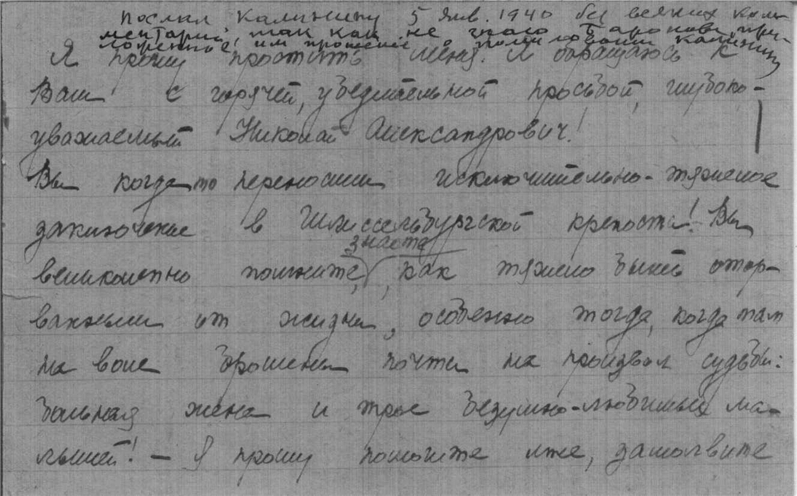 Послал Калинину 5 янв. 1940 без всяких ком-
ментарий, так как не знаю Баронова, при-
ложенное им прошение о помиловании Калинину
Я прошу простить меня. И обращаюсь к
Вам с горячей, убедительной просьбой, глубоко-
уважаемый Николай Александрович!
Вы когда-то переносили исключительно-тяжелое
заключение в Шлиссельбургской крепости! Вы
знаете
великолепно помните, как тяжело быть отор-
ванным от жизни, особенно тогда, когда там
на воле брошены почти на произвол судьбы:
больная жена и трое безумно-любимых ма-
лышей! – Я прошу помогите мне, замолвите